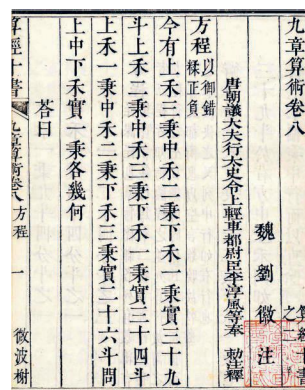 九章算術卷八
算經
之二
魏 劉 徽 注
唐朝議大夫行太史令上輕車都尉臣李淳風等奉 勅注釋
方程以御錯
糅正負
今有上禾三秉中禾二秉下禾一秉實三十九
斗上禾二秉中禾三秉下禾一秉實三十四斗
上禾一秉中禾二秉下禾三秉實二十六斗問
上中下禾實一秉各幾何
荅曰
算經十書
九章算術卷八 方程
一
微波榭